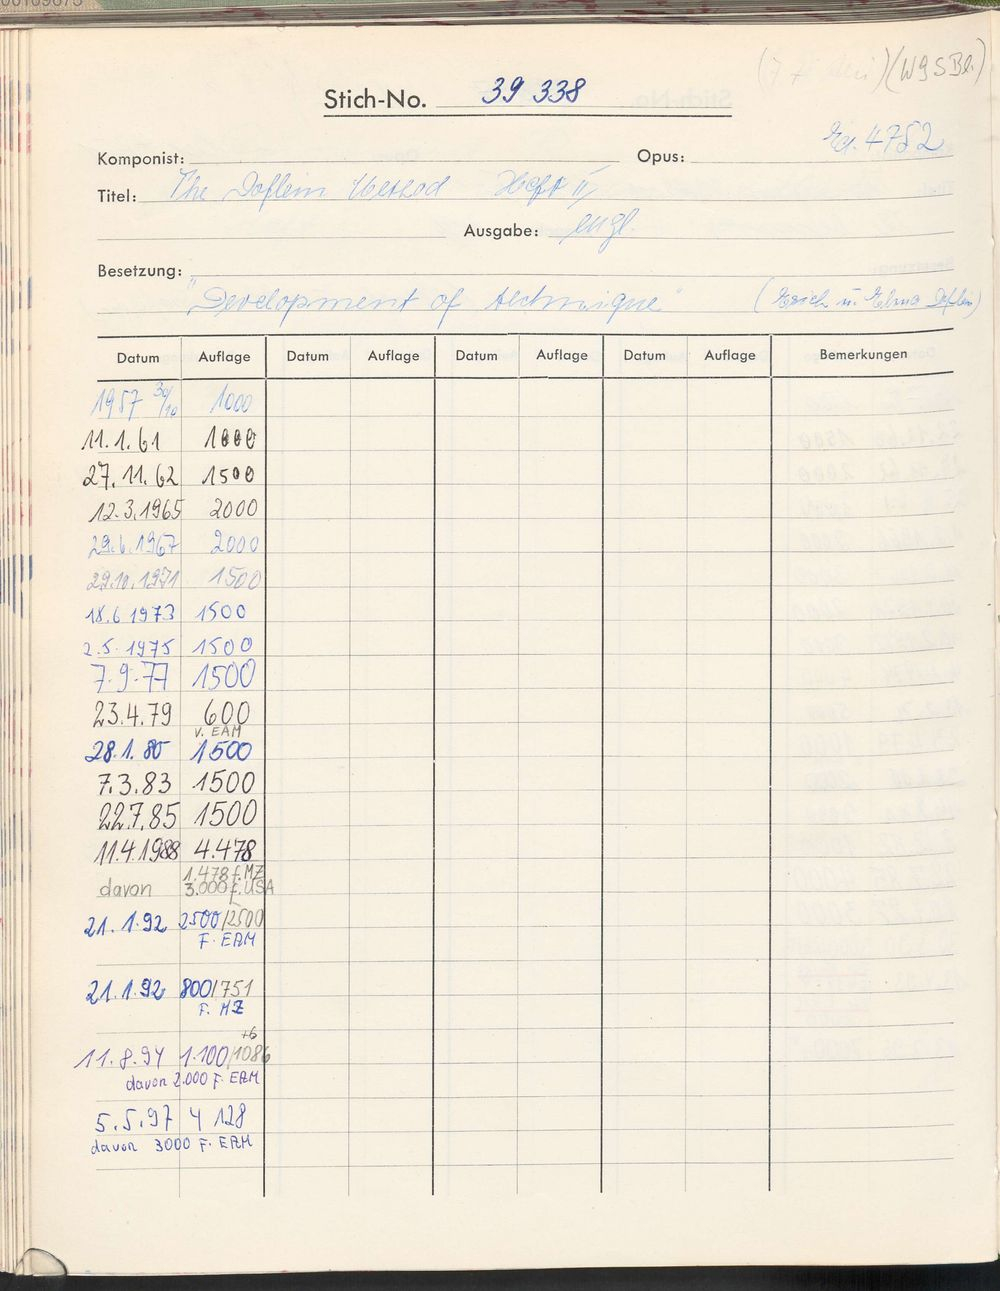 (WGSBl.)
Stich-No. 39 338
Ed. 4752
Komponist: Opus:
Titel: The Doflein Method Heft II
Ausgabe: engl.
Besetzung:
"Development of technique" (Erich u. Elma Doflein)
Datum Auflage Datum Auflage Datum Auflage Datum Auflage Bemerkungen
1957 30/10 1000
11.1.61 1000
27.11.62 1500
12.3.1965 2000
29.6.1967 2000
29.10.1971 1500
18.6 1973 1500
2.5.1975 1500
7.9.77 1500
23.4.79 600
v. EAM
28.1.80 1500
7.3.83 1500
22.7.85 1500
11.4.1988 4.478
1.478 f. MZ
davon 3.000 f. USA
21.1.92 2500/2500
F. EAM
21.1.92 800/751
F. MZ
+6
11.8.94 1.100/1086
davon 2.000 F. EAM
5.5.97 4 128
davon 3000 F. EAM